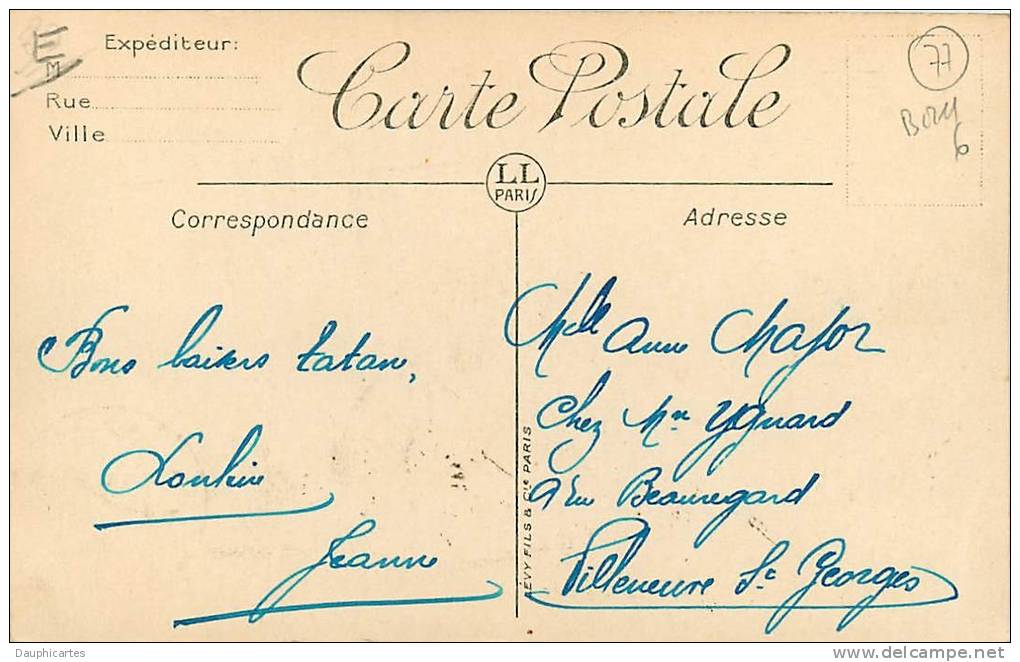 Expéditeur:
M
Rue
Ville
Carte Postale
77
6
LL
PARIS
Correspondance
Adresse
Bons baisers tatan,
Jeanne
Melle Anne Major
Chez Mr Yguard
9 rue Beauregard
Villeneuve St Georges
LEVY FILS & Cie PARIS
Dauphicartes
www.delcampe.net